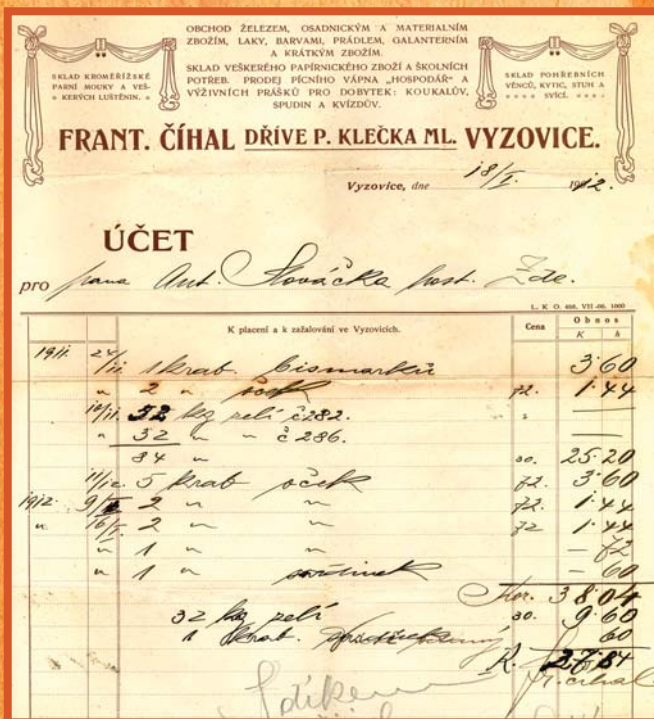 OBCHOD ŽELEZEM, OSADNICKÝM A MATERIALNÍM
ZBOŽÍM, LAKY, BARVAMI, PRÁDLEM, GALANTERNÍM
A KRÁTKÝM ZBOŽÍM.
SKLAD VEŠKERÉHO PAPÍRNICKÉHO ZBOŽÍ A ŠKOLNÍCH
POTŘEB. PRODEJ PÍCNÍHO VÁPNA „HOSPODÁŘ“ A
VÝŽIVNÍCH PRÁŠKŮ PRO DOBYTEK: KOUKALŮV,
SPUDIN A KVÍZDŮV.
SKLAD KROMĚŘÍŽSKÉ
PARNÍ MOUKY A VEŠ-
KERÝCH LUŠTĚNIN.
SKLAD POHŘEBNÍCH
VĚNCŮ, KYTIC, STUH A
SVÍCÍ.
FRANT. ČÍHAL DŘÍVE P. KLEČKA ML. VYZOVICE.
Vyzovice, dne 18/I. 1912.
ÚČET
pro pana Ant. Slováčka host. Zde.
L. K. O. 468, VII -06. 1000
K placení a k zažalování ve Vyzovicích. Cena Obnos
K h
1911. 24/11. 1 krab. bismarků 3·60
" 2 " oček 72. 1·44
10/11. 52 kg zelí č 282. —
" 32 " " č 286. —
84 " 30. 25·20
11/12. 5 krab oček 72. 3·60
1912. 9/I 2 " " 72. 1·44
" 16/I. 2 " " 72 1·44
" 1 " " — 72
" 1 " — 60
38·04
32 kg zelí 30. 9·60
1 krab. 60
K. 27·84